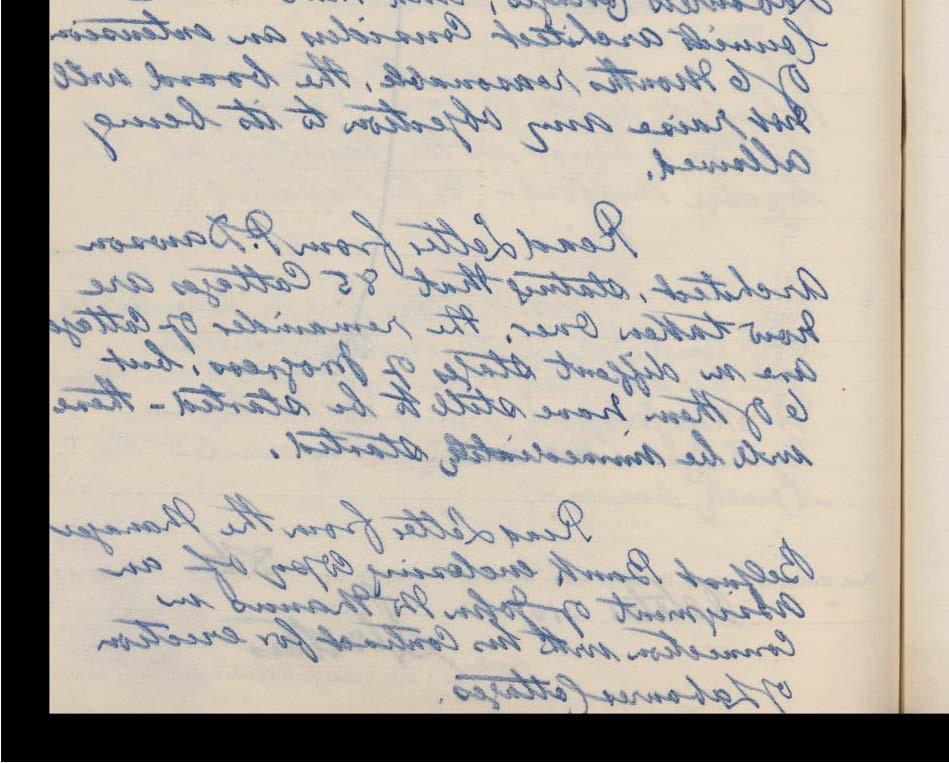 Labourers Cottages,
Council's architect Considers an extension
of 6 Months reasonable, the board will
not raise any objection to its being
allowed.
Read Letter from P. Dawson
Architect, stating that 85 Cottages are
now taken Over, the remainder of Cottages
are in diffrent stages of Progress, but
6 of them have still to be started - these
will be immediately started.
Read Letter from the Manager
Belfast Bank enclosing Copy of an
Assignment of John Mc Manus in
Connection with his Contract for erection
of Labourers Cottages.